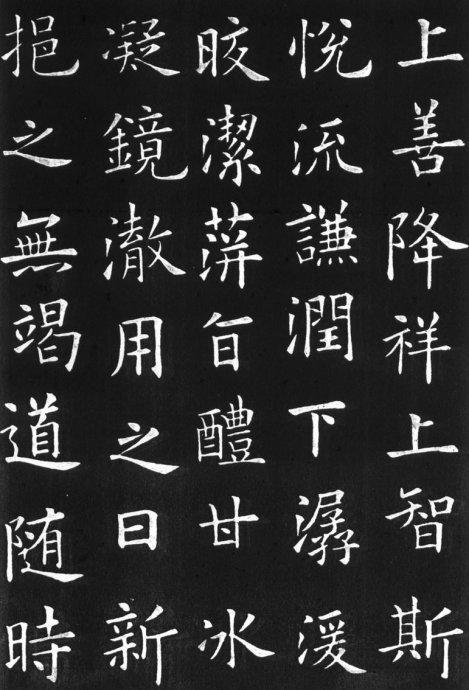 上善降祥上智斯
悦流謙潤下潺湲
皎潔蓱旨醴甘冰
凝鏡澈用之日新
挹之無竭道随時